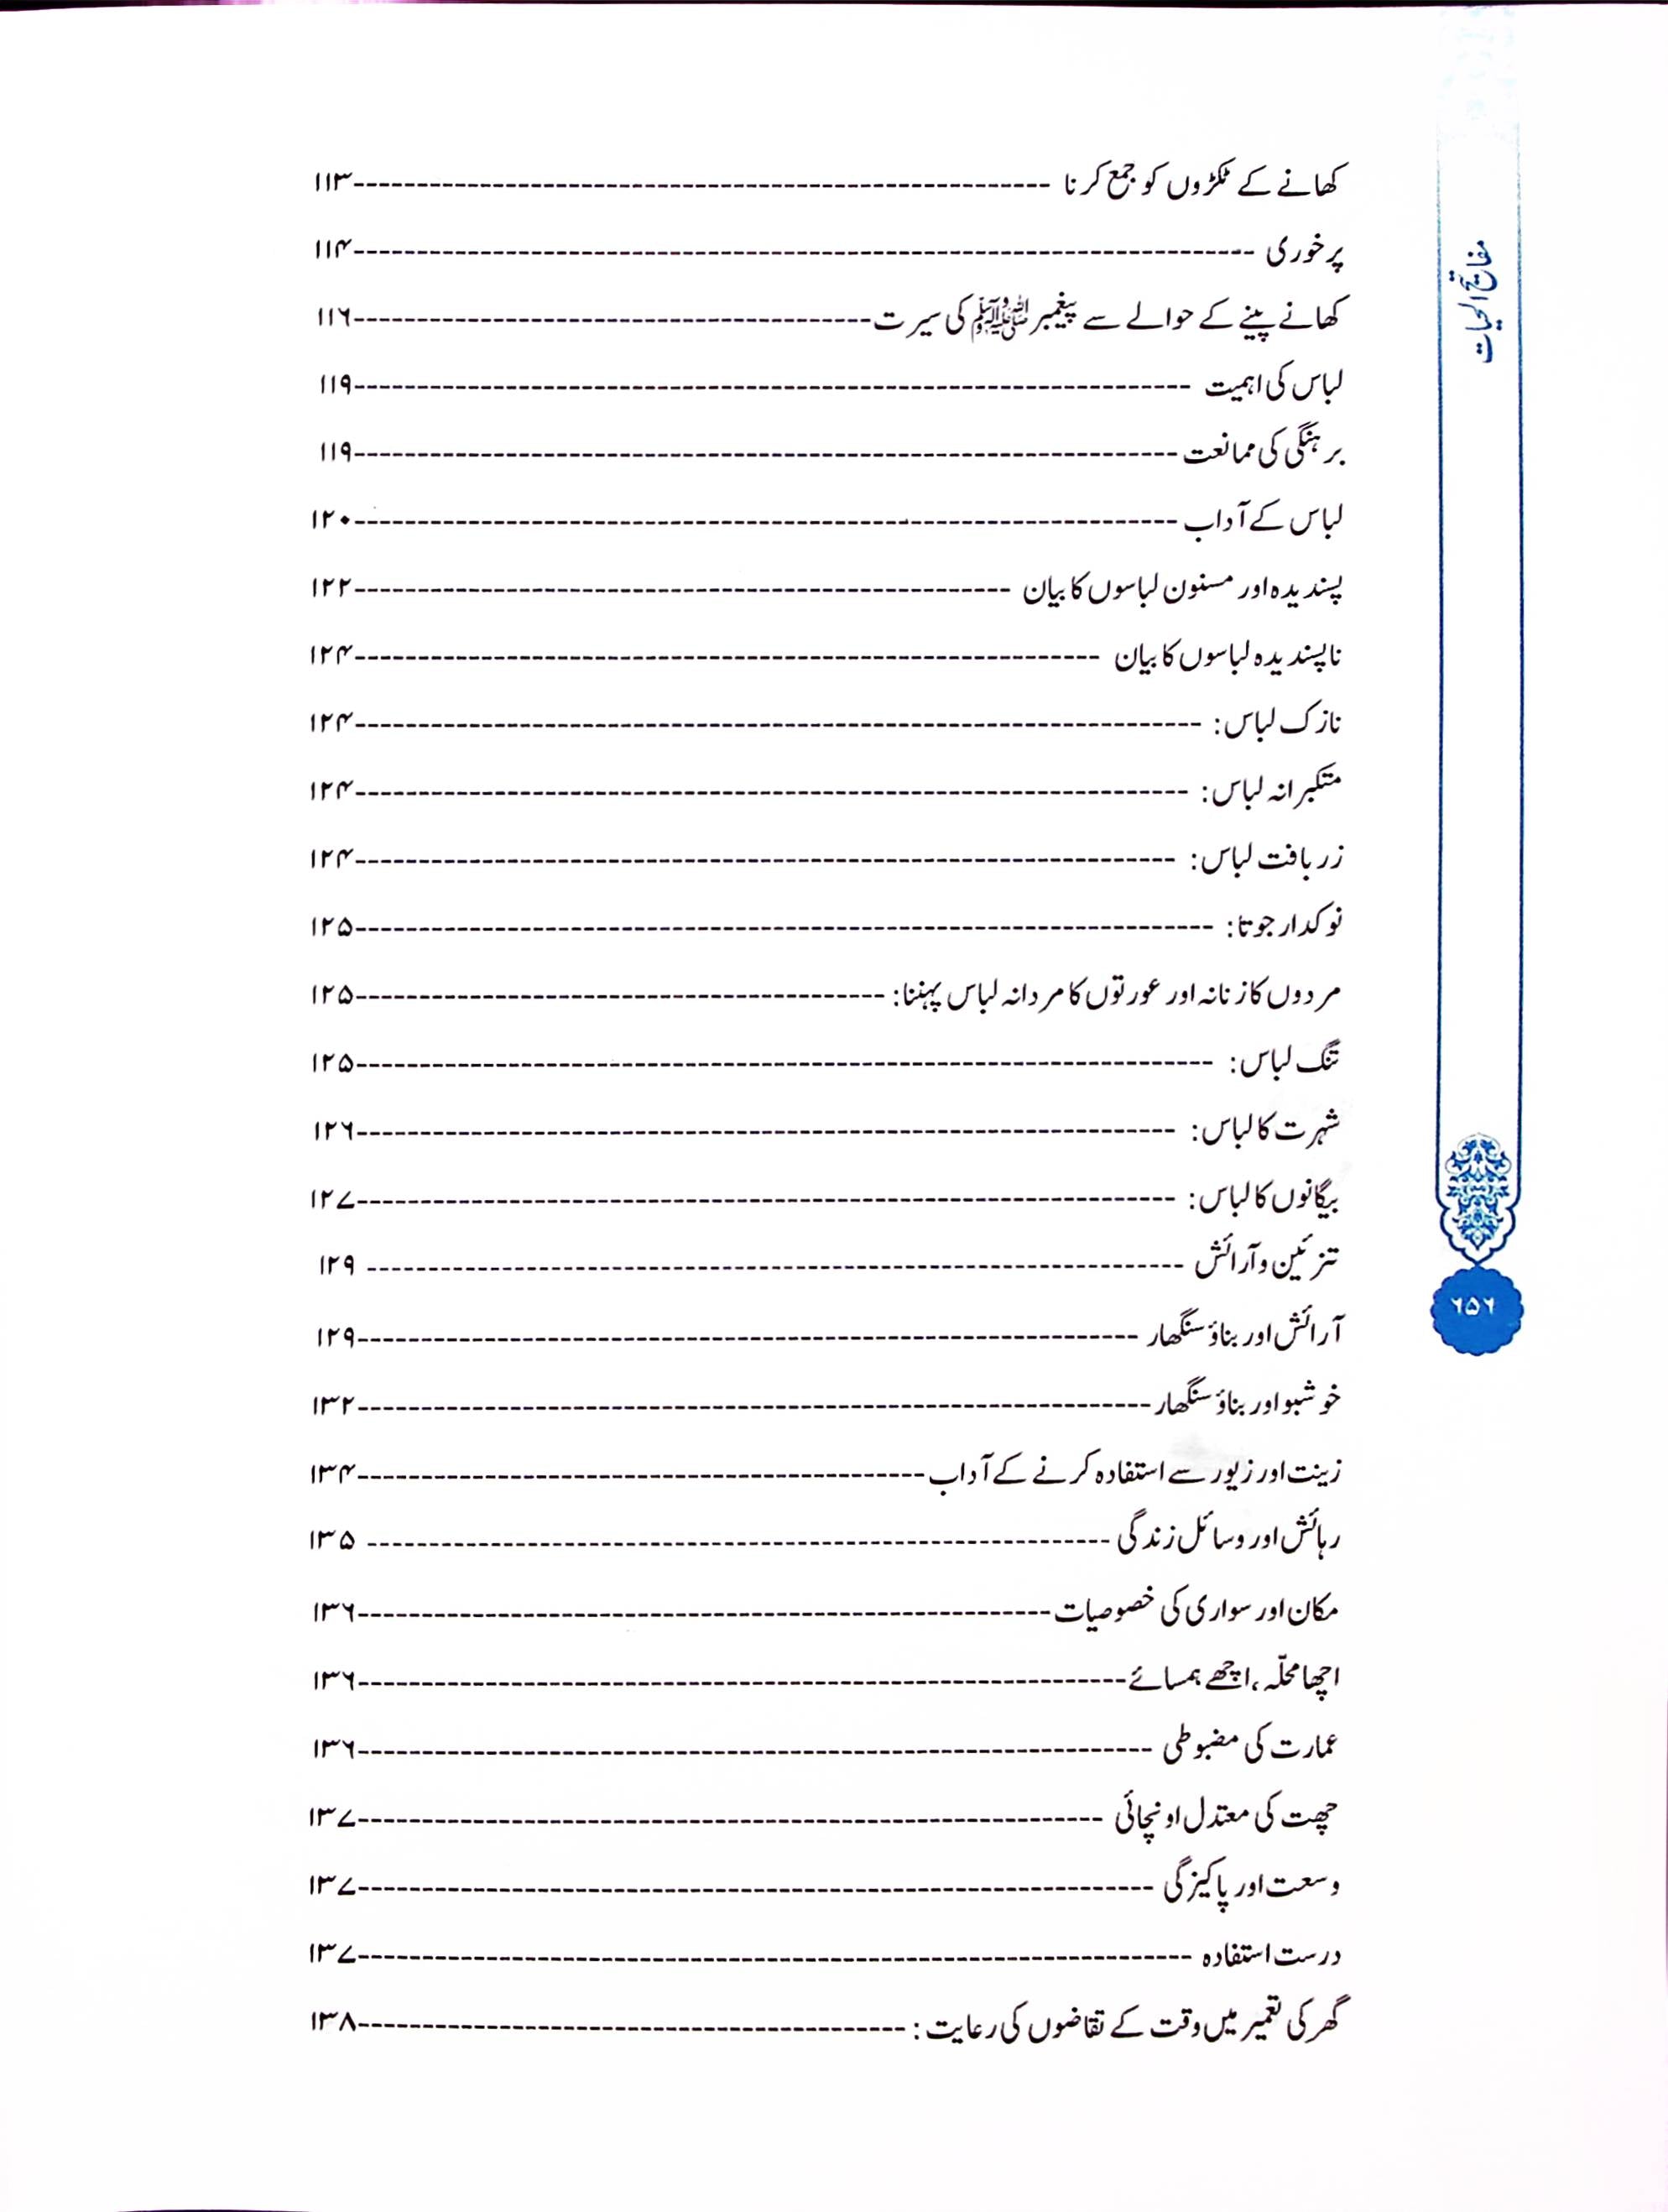 کھانے کے ٹکڑوں کو جمع کرنا ---------- ۱۱۳
پرخوری ---------- ۱۱۴
کھانے پینے کے حوالے سے پیغمبر ﷺ کی سیرت ---------- ۱۱۶
لباس کی اہمیت ---------- ۱۱۹
برہنگی کی ممانعت ---------- ۱۱۹
لباس کے آداب ---------- ۱۲۰
پسندیدہ اور مسنون لباسوں کا بیان ---------- ۱۲۲
ناپسندیدہ لباسوں کا بیان ---------- ۱۲۴
نازک لباس: ---------- ۱۲۴
متکبرانہ لباس: ---------- ۱۲۴
زربافت لباس: ---------- ۱۲۴
نوکدار جوتا: ---------- ۱۲۵
مردوں کا زنانہ اور عورتوں کا مردانہ لباس پہننا: ---------- ۱۲۵
تنگ لباس: ---------- ۱۲۵
شہرت کا لباس: ---------- ۱۲۶
بیگانوں کا لباس: ---------- ۱۲۷
تزئین و آرائش ---------- ۱۲۹
آرائش اور بناؤ سنگھار ---------- ۱۲۹
خوشبو اور بناؤ سنگھار ---------- ۱۳۲
زینت اور زیور سے استفادہ کرنے کے آداب ---------- ۱۳۴
رہائش اور وسائل زندگی ---------- ۱۳۵
مکان اور سواری کی خصوصیات ---------- ۱۳۶
اچھا محلّہ، اچھے ہمسائے ---------- ۱۳۶
عمارت کی مضبوطی ---------- ۱۳۶
چھت کی معتدل اونچائی ---------- ۱۳۷
وسعت اور پاکیزگی ---------- ۱۳۷
درست استفادہ ---------- ۱۳۷
گھر کی تعمیر میں وقت کے تقاضوں کی رعایت: ---------- ۱۳۸
مفاتیح الحیات
۶۵۶